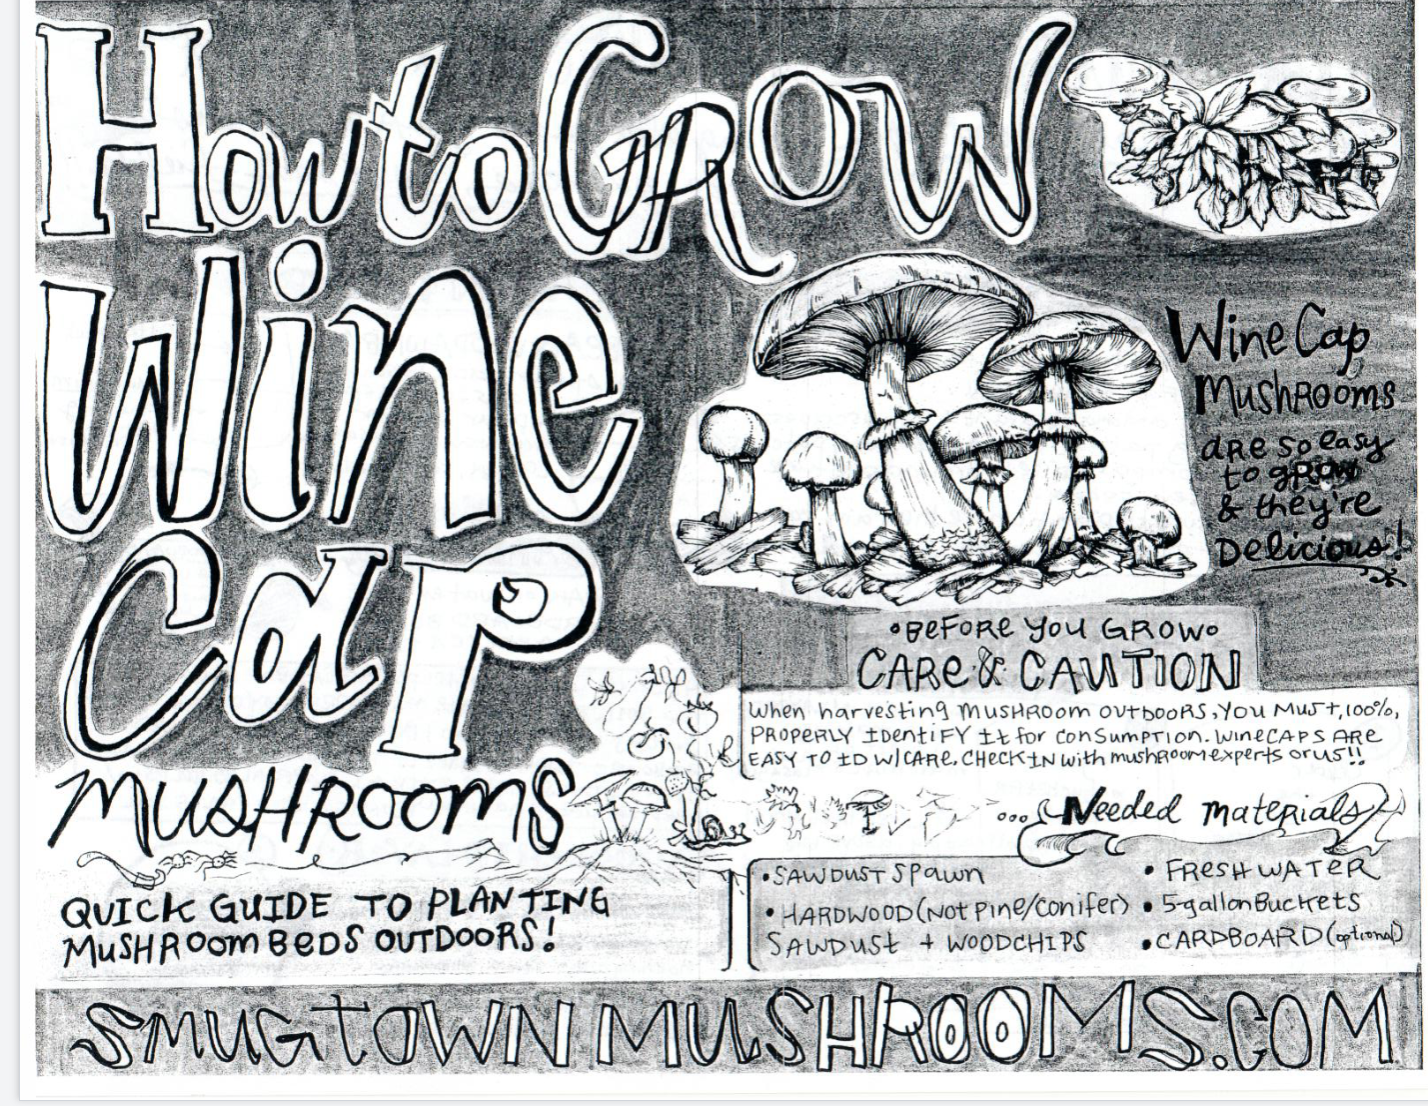 How to GROW
Wine
Cap
MUSHROOMS
QUICK GUIDE TO PLANTING
MUSHROOM BEDS OUTDOORS!
Wine Cap
MUSHROOMS
are so easy
to grow
& they're
Delicious!
•BEFORE YOU GROW•
CARE & CAUTION
When harvesting MUSHROOM OUTDOORS, YOU MUST, 100%,
PROPERLY IDENTIFY It for CONSUMPTION. WINECAPS ARE
EASY TO ID W/ CARE. CHECK IN with mushroom experts or us!!
... Needed materials
• SAWDUST SPAWN
• HARDWOOD (Not Pine/Conifer)
SAWDUST + WOODCHIPS
• FRESH WATER
• 5-gallon Buckets
• CARDBOARD (optional)
SMUGTOWN MUSHROOMS.COM